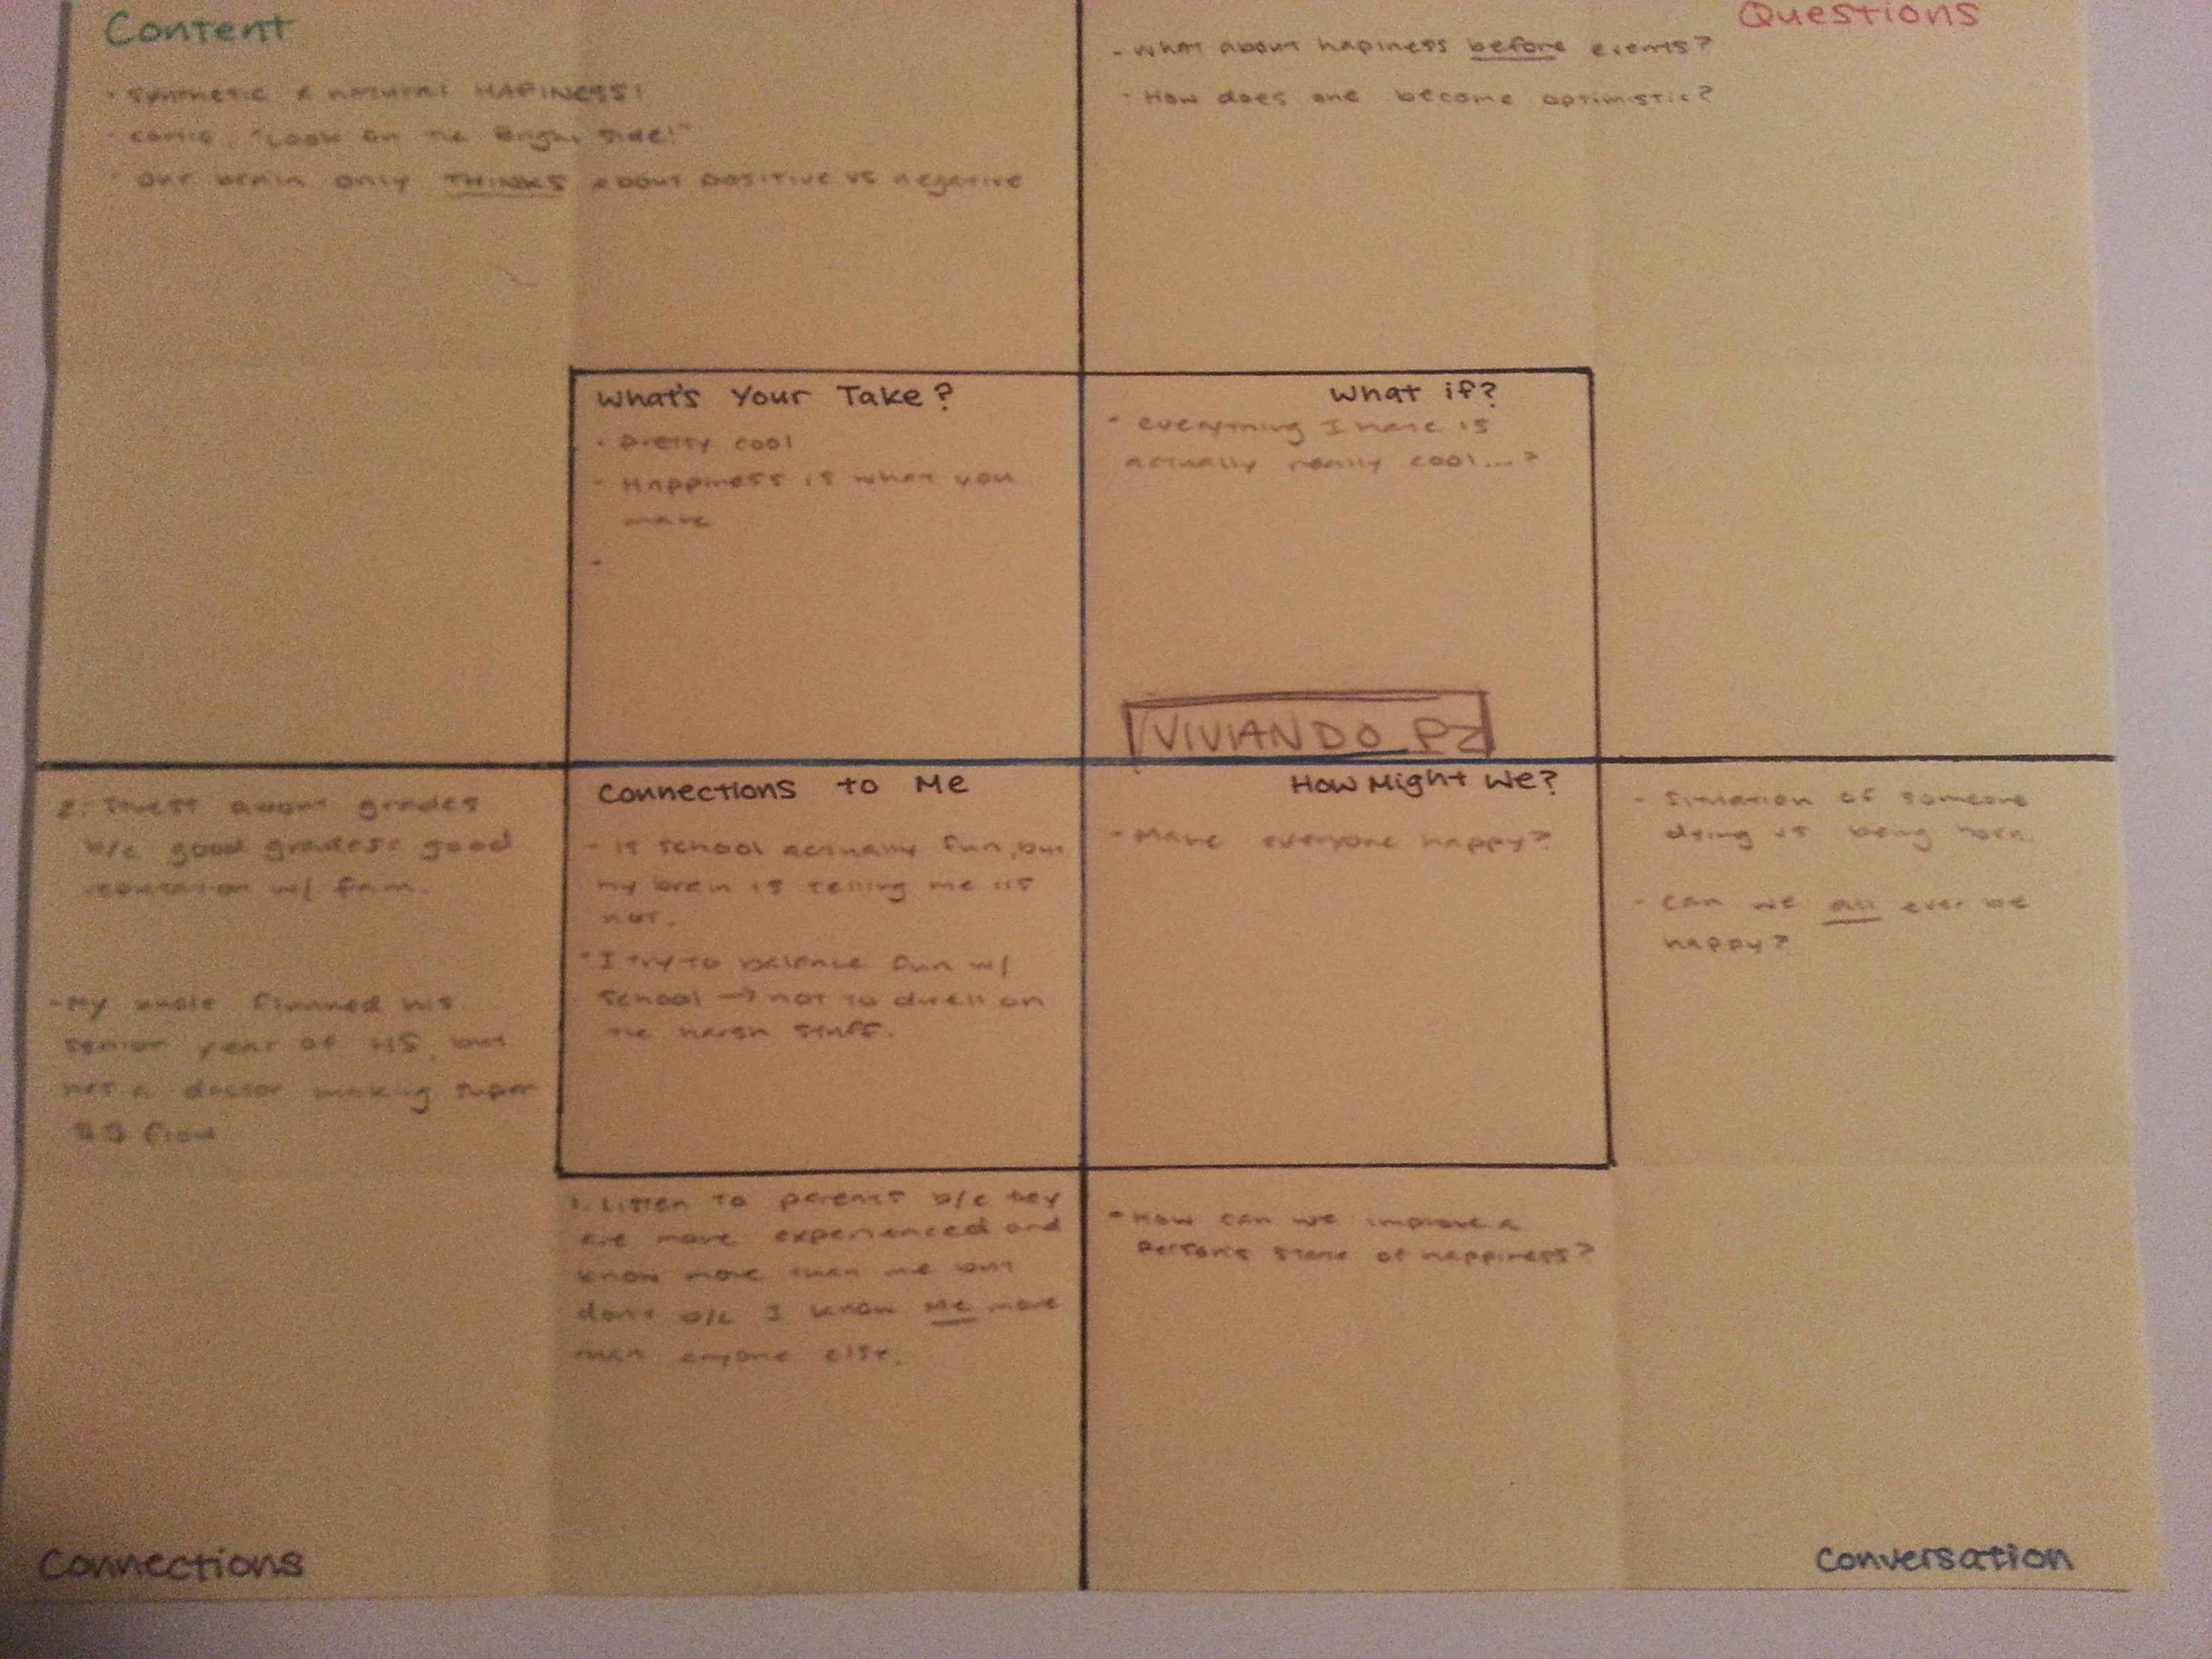 Content
Questions
- What about hapiness before events?
- How does one become optimistic?
· Synthetic & natural HAPINESS!
· comic, "Look on the Bright side!"
· Our brain only THINKS about positive vs negative
What's Your Take?
· pretty cool
- Happiness is what you
make
-
What if?
- everything I hate is
actually really cool...?
VIVIANDO P2
2. Stress about grades
b/c good grades= good
reputation w/ fam.
- My uncle his
senior year of HS, but
a doctor making super
$$
Connections to Me
- Is school actually fun, but
my brain is telling me it's
not.
· I try to balance fun w/
school → not to dwell on
the harsh stuff.
How Might We?
- Make everyone happy?
- Situation of someone
dying vs being born.
- Can we all ever be
happy?
1. Listen to parents b/c they
are more experienced and
know more than me but
don't b/c I know me more
than anyone else.
- How can we improve a
person's state of happiness?
Connections
Conversation